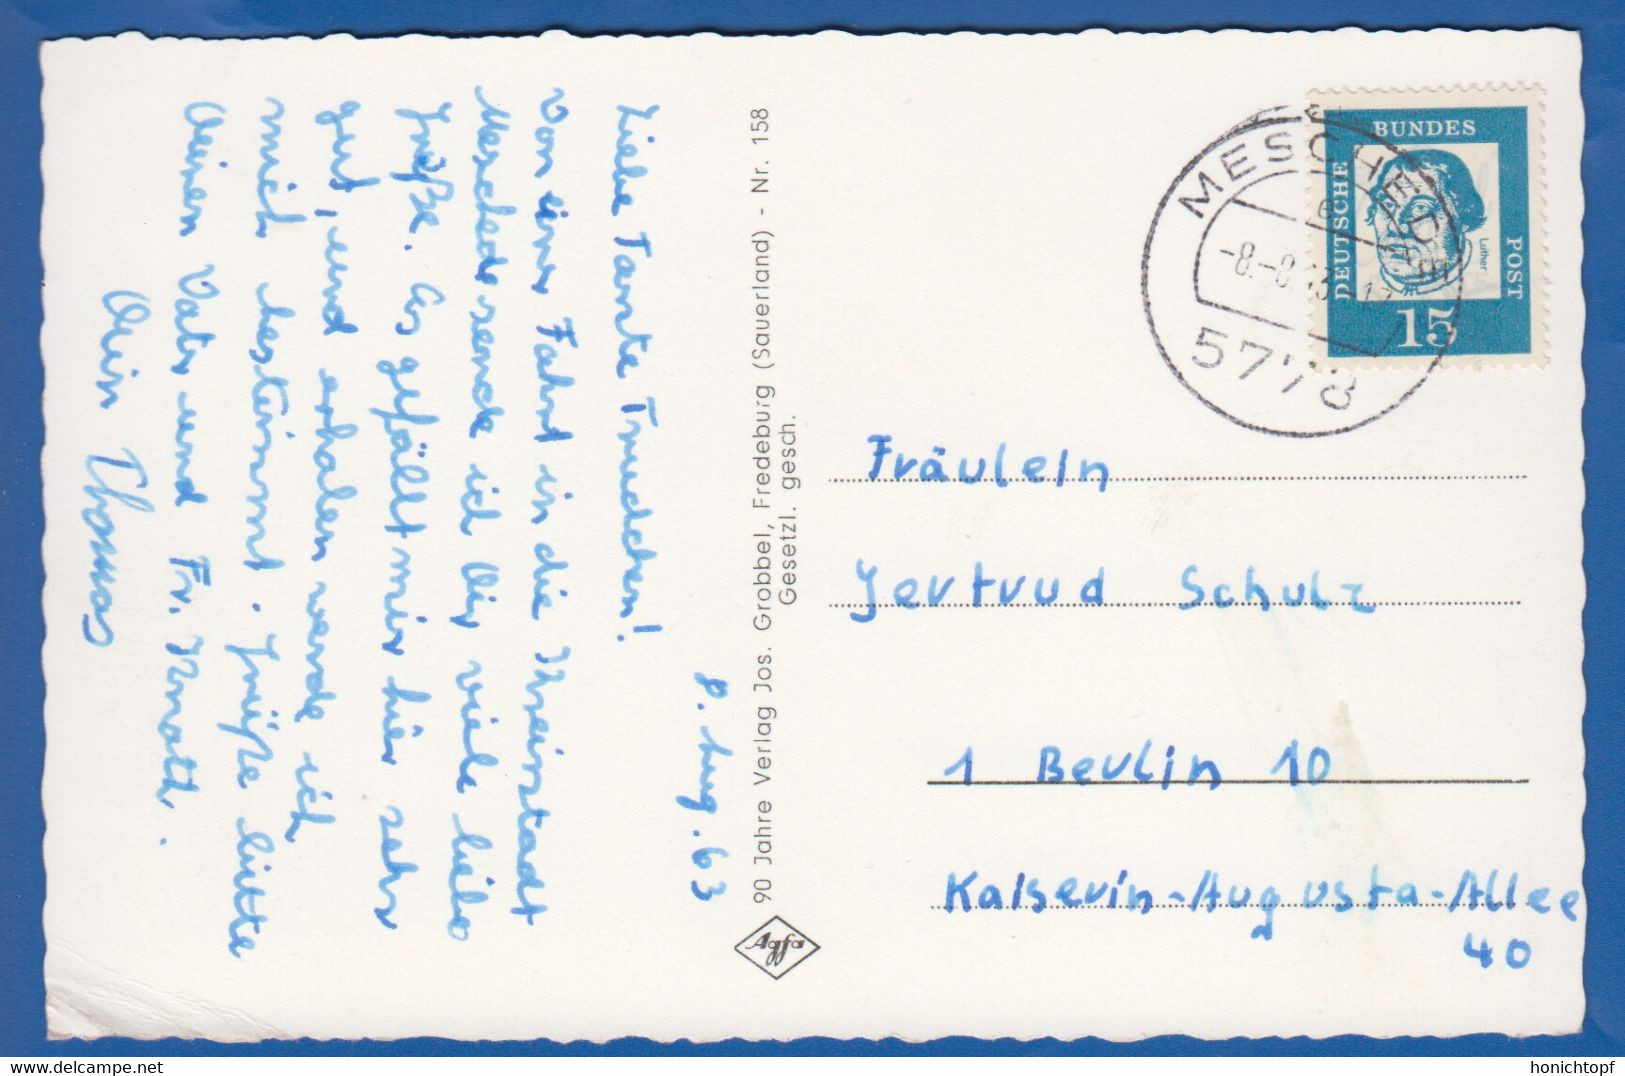 8. Aug. 63
Liebe Tante Trudchen!
Von eine Fahrt in die Kreisstadt
Meschede sende ich Dir viele liebe
Grüße. Es gefällt mir hier sehr
gut, und erhalen werde ich
mich bestimmt. Grüße bitte
Deinen Vater und Fr. Knoth.
Dein Thomas
90 Jahre Verlag Jos. Grobbel, Fredeburg (Sauerland) - Nr. 158
Gesetzl. gesch.
Agfa
MESCHEDE
-8.-8.63-17
5778
DEUTSCHE BUNDES POST
Luther
15
Fräulein
Gertrud Schulz
1 Berlin 10
Kaiserin-Augusta-Allee
40
www.delcampe.net
honichtopf